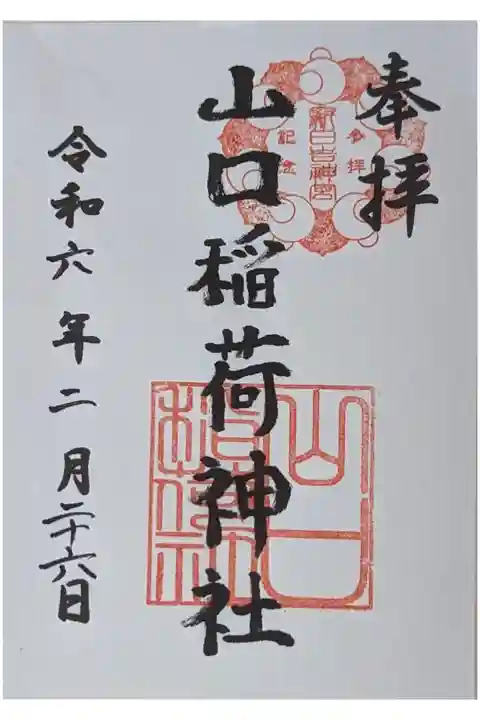 奉拝
新日吉神宮
参拝
記念
山口稲荷神社
山口
令和六年二月二十六日